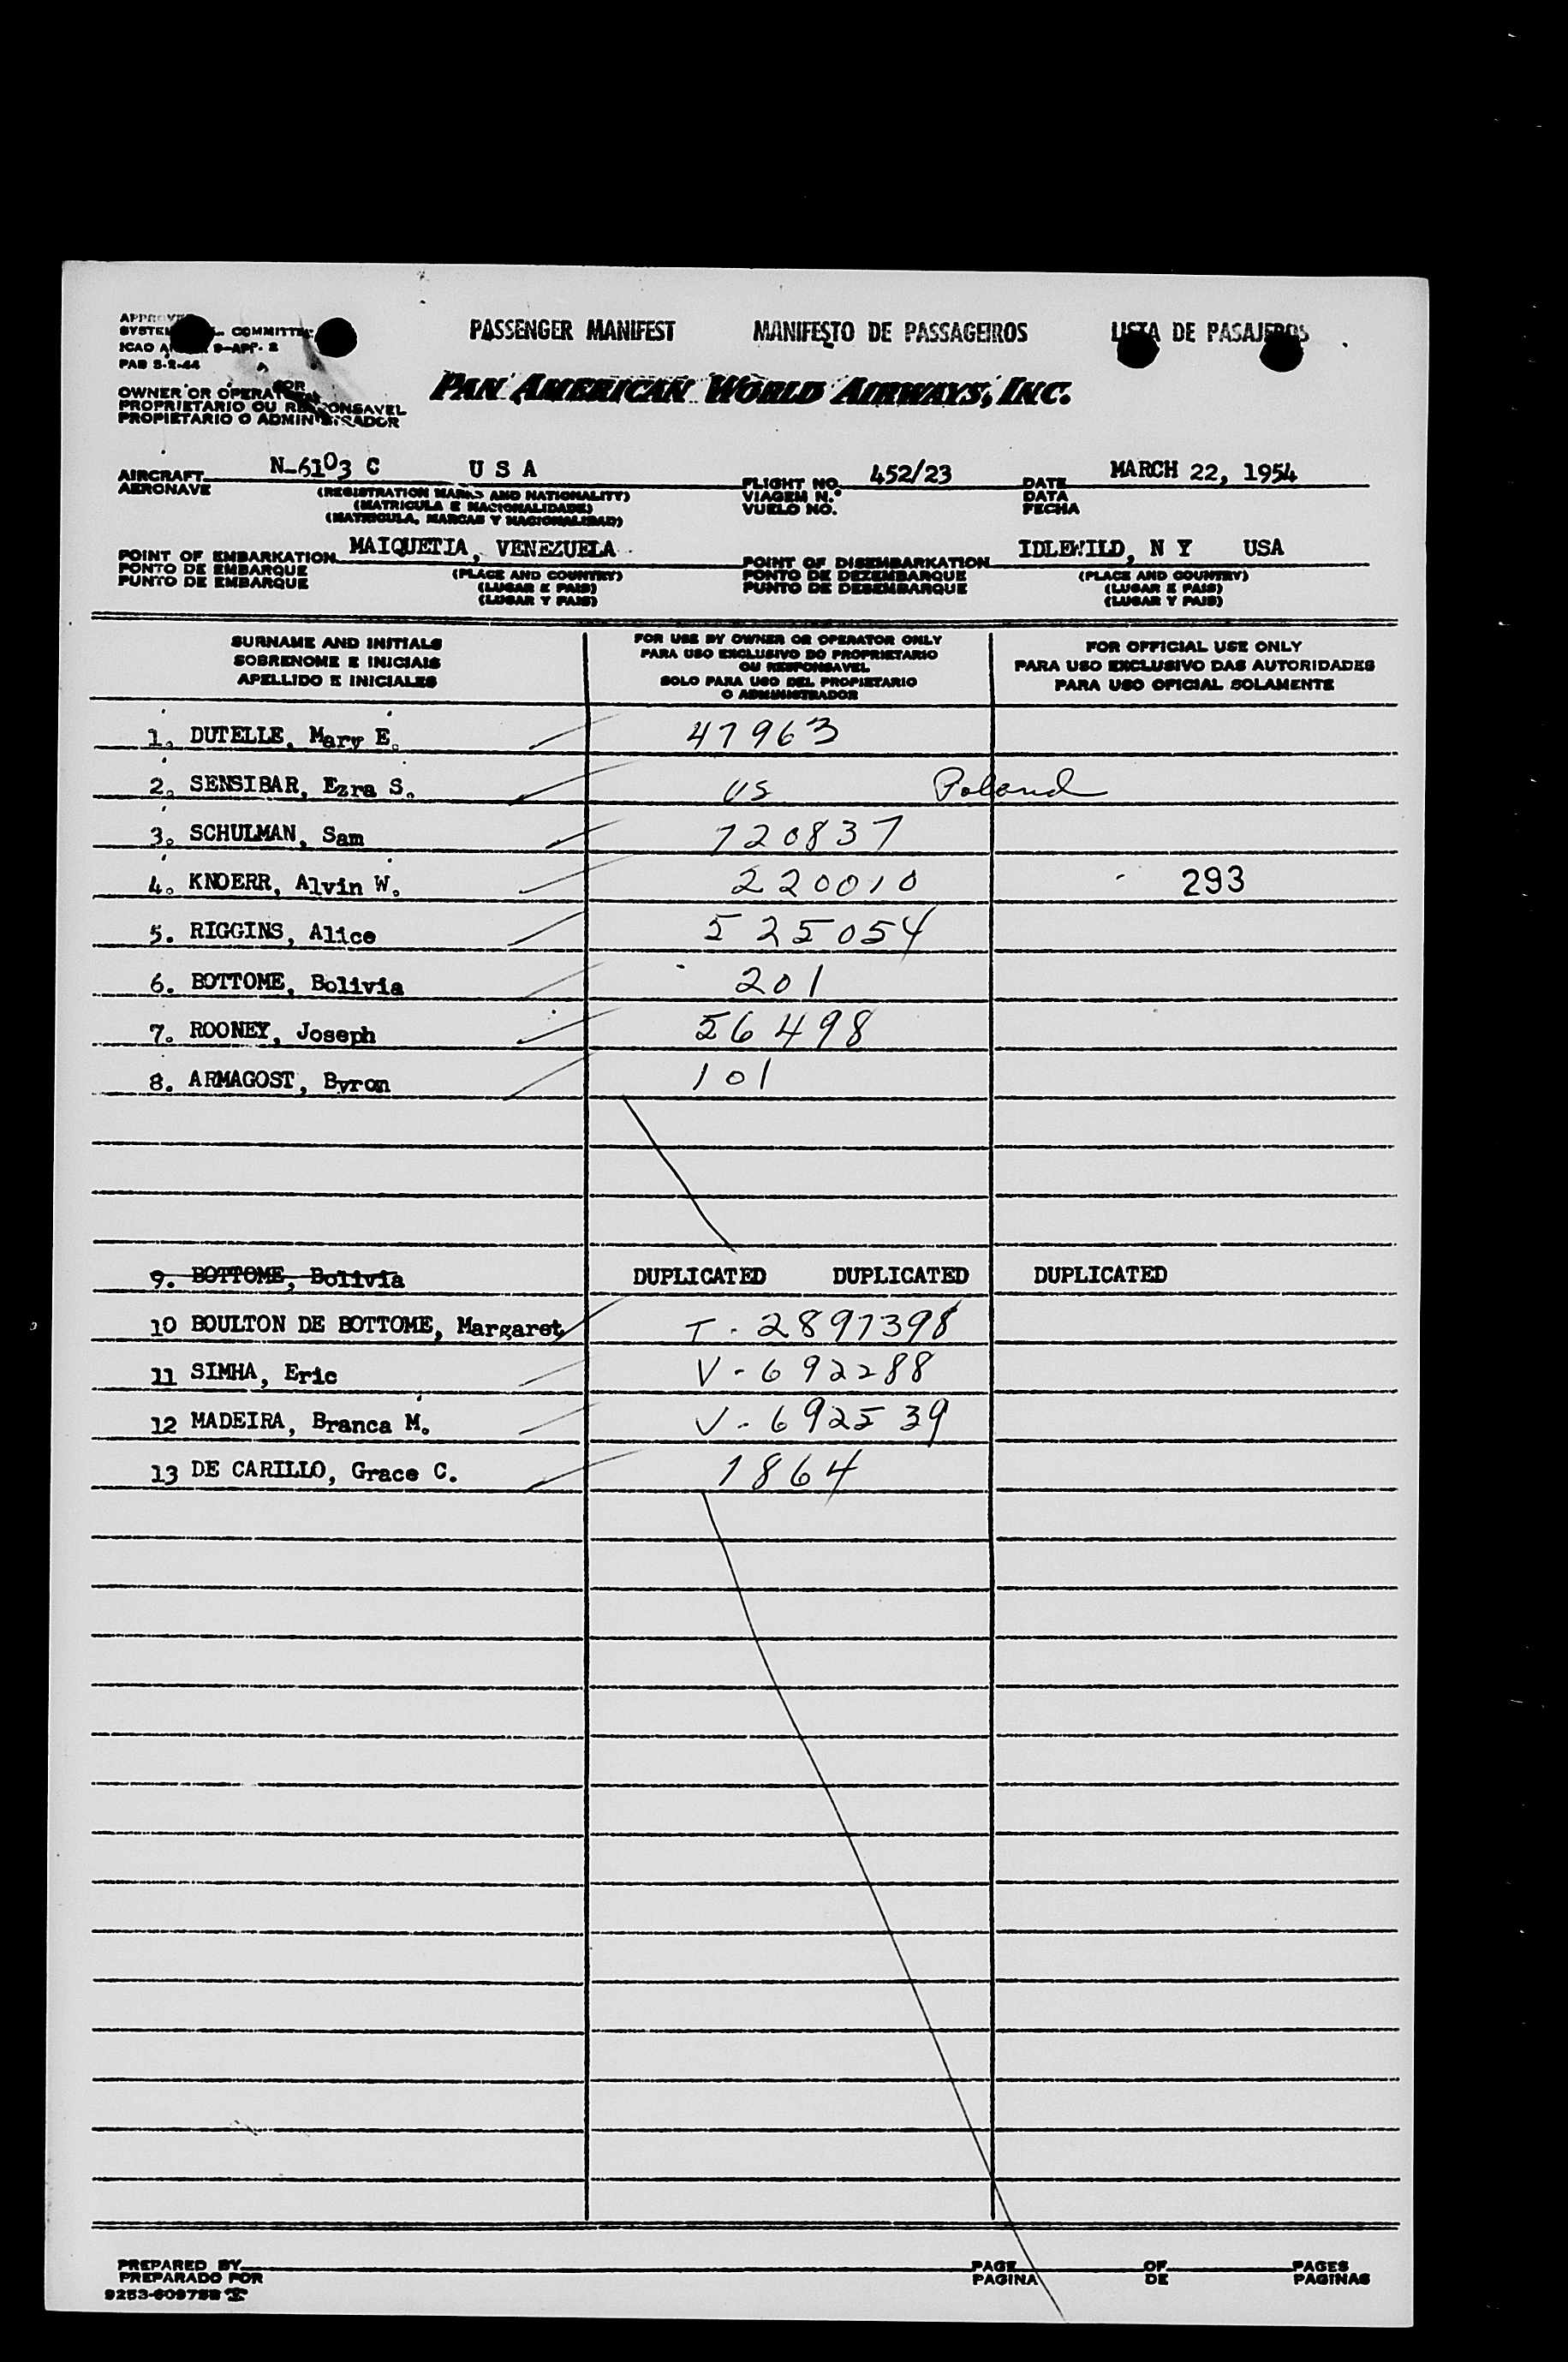 PASSENGER MANIFEST MANIFESTO DE PASSAGEIROS LISTA DE PASAJEROS
COMMITTEE
ICAO 9-APP. 2
PAB 5-2-44
PAN AMERICAN WORLD AIRWAYS, INC.
OWNER OR OPERATOR
PROPRIETARIO OU RESPONSAVEL
PROPIETARIO O ADMINISTRADOR
AIRCRAFT N-6103 C U S A FLIGHT NO. 452/23 DATE MARCH 22, 1954
AERONAVE (REGISTRATION MARKS AND NATIONALITY) VIAGEM N.º DATA
(MATRICULA E NACIONALIDADE) VUELO NO. FECHA
(MATRICULA, MARCAS Y NACIONALIDAD)
POINT OF EMBARKATION MAIQUETIA, VENEZUELA POINT OF DISEMBARKATION IDLEWILD, N Y USA
PONTO DE EMBARQUE (PLACE AND COUNTRY) PONTO DE DEZEMBARQUE (PLACE AND COUNTRY)
PUNTO DE EMBARQUE (LUGAR E PAIS) PUNTO DE DESEMBARQUE (LUGAR E PAIS)
(LUGAR Y PAIS) (LUGAR Y PAIS)
SURNAME AND INITIALS
SOBRENOME E INICIAIS
APELLIDO E INICIALES
FOR USE BY OWNER OR OPERATOR ONLY
PARA USO EXCLUSIVO DO PROPRIETARIO
OU RESPONSAVEL
SOLO PARA USO DEL PROPIETARIO
O ADMINISTRADOR
FOR OFFICIAL USE ONLY
PARA USO EXCLUSIVO DAS AUTORIDADES
PARA USO OFICIAL SOLAMENTE
1. DUTELLE, Mary E. 47963
2. SENSIBAR, Ezra S. US Poland
3. SCHULMAN, Sam 720837
4. KNOERR, Alvin W. 220010 293
5. RIGGINS, Alice 525054
6. BOTTOME, Bolivia 201
7. ROONEY, Joseph 56498
8. ARMAGOST, Byron 101
9. BOTTOME, Bolivia DUPLICATED DUPLICATED DUPLICATED
10 BOULTON DE BOTTOME, Margaret T-2897398
11 SIMHA, Eric V-692288
12 MADEIRA, Branca M. V-692539
13 DE CARILLO, Grace C. 1864
PREPARED BY PAGE OF PAGES
PREPARADO POR PAGINA DE PAGINAS